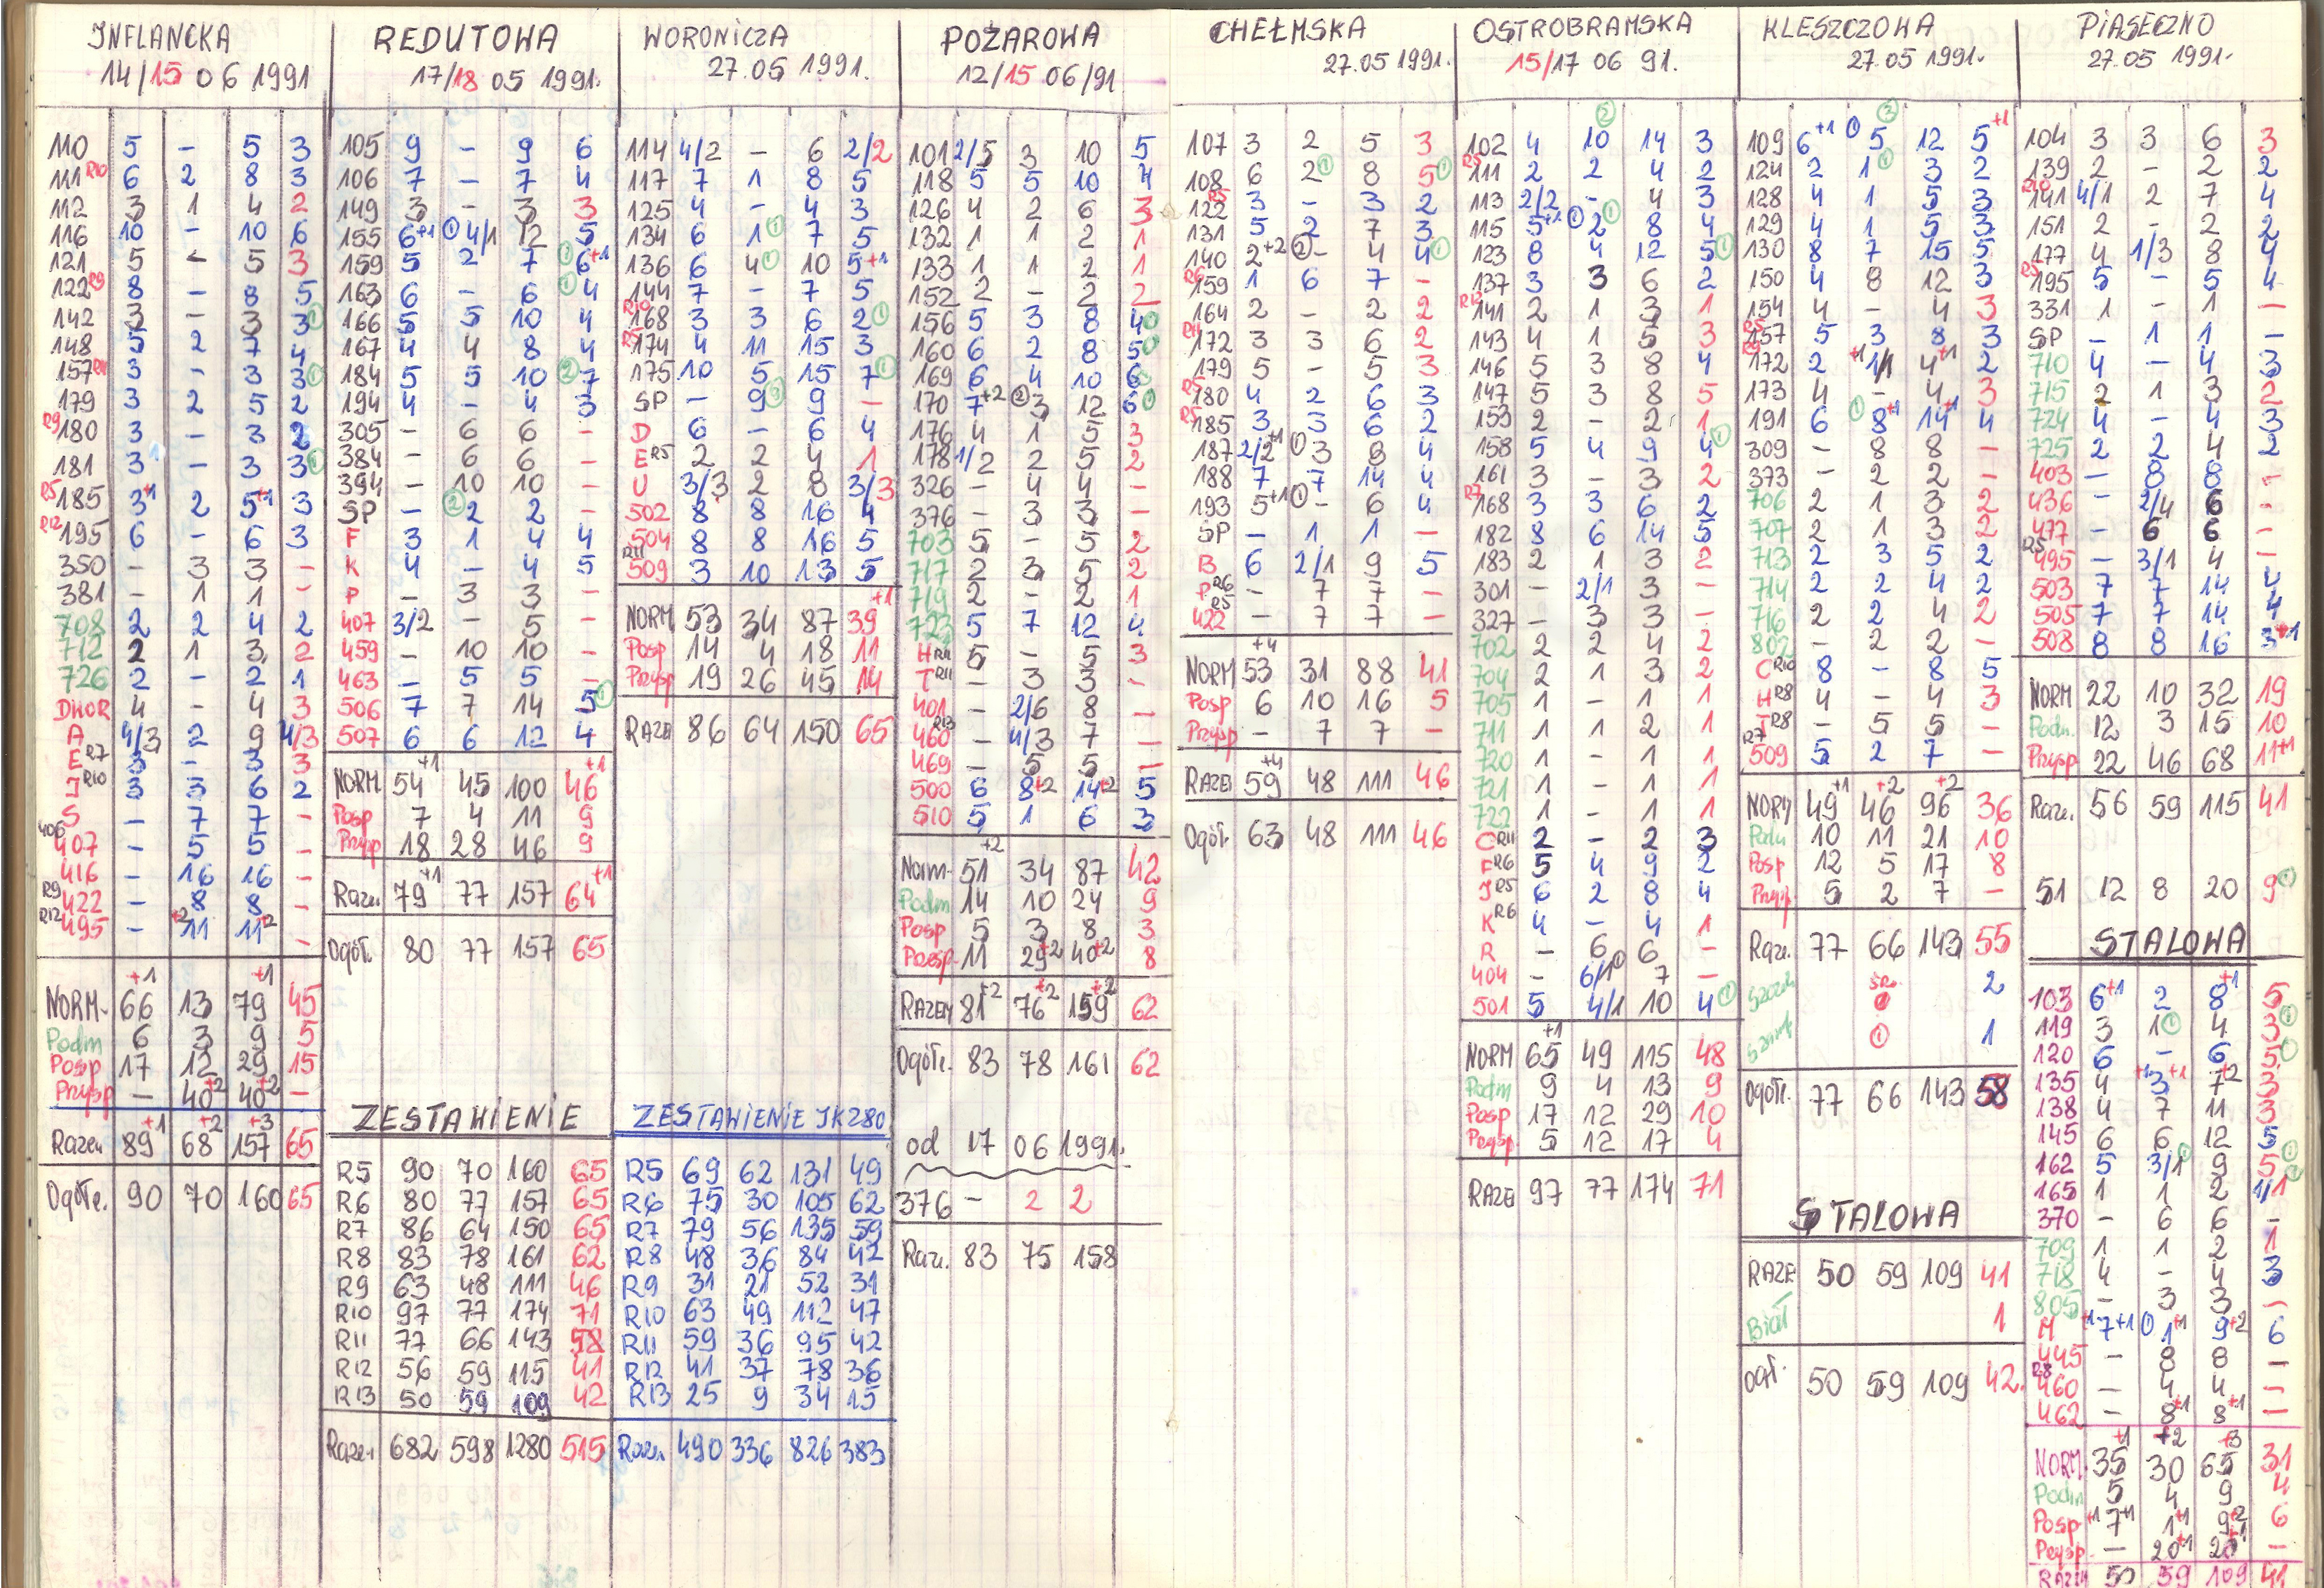 INFLANCKA
14/15 06 1991
110 5 - 5 3
111 R10 6 2 8 3
112 3 1 4 2
116 10 - 10 6
121 5 - 5 3
122 R9 8 - 8 5
142 3 - 3 3 ①
148 5 2 7 4
157 R11 3 - 3 3 ①
179 3 2 5 2
R9 180 3 - 3 2
181 3 - 3 3 ①
R5 185 3+1 2 5+1 3
R12 195 6 - 6 3
350 - 3 3 -
381 - 1 1 -
708 2 2 4 2
712 2 1 3 2
726 2 - 2 1
DWOR 4 - 4 3
A 4/3 2 9 4/3
E R7 3 - 3 3
J R10 3 3 6 2
S - 7 7 -
406 407 - 5 5 -
416 - 16 16 -
R9 422 - 8 8 -
R12 495 - 11+2 11+2 -
NORM- 66+1 13 79+1 45
Podm 6 3 9 5
Posp 17 12 29 15
Przysp - 40+2 40+2 -
Razem 89+1 68+2 157+3 65
Ogółe. 90 70 160 65
REDUTOWA
17/18 05 1991.
105 9 - 9 6
106 7 - 7 4
149 3 - 3 3
155 6+1 ① 4/1 12 5
159 5 2 7 ① 6+1
163 6 - 6 ① 4
166 5 5 10 4
167 4 4 8 4
184 5 5 10 ② 7
194 4 - 4 3
305 - 6 6 -
384 - 6 6 -
394 - 10 10 -
SP - ② 2 2 -
F 3 1 4 4
K 4 - 4 5
P - 3 3 -
407 3/2 - 5 -
459 - 10 10 -
463 - 5 5 -
506 7 7 14 5 ①
507 6 6 12 4
NORM 54+1 45 100 46+1
Posp 7 4 11 9
Przysp 18 28 46 9
Razem 79+1 77 157 64+1
Ogół. 80 77 157 65
ZESTAWIENIE
R5 90 70 160 65
R6 80 77 157 65
R7 86 64 150 65
R8 83 78 161 62
R9 63 48 111 46
R10 97 77 174 71
R11 77 66 143 58
R12 56 59 115 41
R13 50 59 109 42
Razem 682 598 1280 515
WORONICZA
27.05 1991.
114 4/2 - 6 2/2
117 7 1 8 5
125 4 - 4 3
134 6 1 ① 7 5
136 6 4 ① 10 5+1
144 7 - 7 5
R10 168 3 3 6 2 ①
R5 174 4 11 15 3
175 10 5 15 7 ①
SP - 9 9 -
D 6 - 6 4
E R5 2 2 4 1
U 3/3 2 8 3/3
502 8 8 16 4
504 8 8 16 5
R11 509 3 10 13 5
NORM 53 34 87 39+1
Posp 14 4 18 11
Przysp 19 26 45 14
RAZEM 86 64 150 65
ZESTAWIENIE IK280
R5 69 62 131 49
R6 75 30 105 62
R7 79 56 135 59
R8 48 36 84 42
R9 31 21 52 31
R10 63 49 112 47
R11 59 36 95 42
R12 41 37 78 36
R13 25 9 34 15
Razem 490 336 826 383
POŻAROWA
12/15 06/91
101 2/5 3 10 5
118 5 5 10 4
126 4 2 6 3
132 1 1 2 1
133 1 1 2 1
152 2 - 2 2
156 5 3 8 4
160 6 2 8 5
169 6 4 10 6
170 7+2 ② 3 12 6
176 4 1 5 3
178 1/2 2 5 2
326 - 4 4 -
376 - 3 3 -
703 5 - 5 2
717 2 3 5 2
719 2 - 2 1
723 5 7 12 4
H R11 5 - 5 3
T R11 - 3 3 -
401 - 2/6 8 -
460 R13 - 4/3 7 -
469 - 5 5 -
500 6 8+2 14+2 5
510 5 1 6 3
Norm- 51+2 34 87 42
Podm 14 10 24 9
Posp 5 3 8 3
Przesp. 11 29+2 40+2 8
RAZEM 81+2 76+2 159+2 62
Ogółe. 83 78 161 62
od 17 06 1991.
376 - 2 2
Raze. 83 75 158
CHEŁMSKA
27.05 1991.
107 3 2 5 3
108 6 2 ① 8 5 ①
R5 122 3 - 3 2
131 5 2 7 3
140 2+2 ② - 4 4 ①
R6 159 1 6 7 -
164 2 - 2 2
R11 172 3 3 6 2
179 5 - 5 3
R5 180 4 2 6 3
R5 185 3 3 6 2
187 2/2+1 ① 3 8 4
188 7 7 14 4
193 5+1 ① - 6 4
SP - 1 1 -
B 6 2/1 9 5
P R6 - 7 7 -
R5 422 - 7 7 -
NORM 53+4 31 88 41
Posp 6 10 16 5
Przysp - 7 7 -
RAZEM 59+4 48 111 46
Ogół. 63 48 111 46
OSTROBRAMSKA
15/17 06 91.
②
102 4 10 14 3
R5 111 2 2 4 2
113 2/2 - 4 3
115 5+1 ① 2 ① 8 4
123 8 4 12 5 ①
137 3 3 6 2
R12 141 2 1 3 1
143 4 1 5 3
146 5 3 8 4
147 5 3 8 5
153 2 - 2 1
158 5 4 9 4 ①
161 3 - 3 2
R7 168 3 3 6 2
182 8 6 14 5
183 2 1 3 2
301 - 2/1 3 -
327 - 3 3 -
702 2 2 4 2
704 2 1 3 2
705 1 - 1 1
711 1 1 2 1
720 1 - 1 1
721 1 - 1 1
722 1 - 1 1
C R11 2 - 2 3
F R6 5 4 9 2
J R5 6 2 8 4
K R6 4 - 4 1
R - 6 6 -
404 - 6/1 ① 7 -
501 5 4/1 10 4 ①
NORM 65+1 49 115 48
Podm 9 4 13 9
Posp 17 12 29 10
Przysp. 5 12 17 4
RAZE 97 77 174 71
KLESZCZOWA
27.05 1991.
109 6+1 ① 5 12 5+1
124 2 1 ① 3 2
128 4 1 5 3
129 4 1 5 3
130 8 7 15 5
150 4 8 12 3
154 4 - 4 3
R5 157 5 3 8 3
R9 172 2 +1 1/1 4+1 2
173 4 - 4 3
191 6 ① 8+1 14+1 4
309 - 8 8 -
373 - 2 2 -
706 2 1 3 2
707 2 1 3 2
713 2 3 5 2
714 2 2 4 2
716 2 2 4 2
802 - 2 2 -
C R10 8 - 8 5
H R8 4 - 4 3
T R8 - 5 5 -
R7 509 5 2 7 -
NORM 49+1 46+2 96+2 36
Podm 10 11 21 10
Posp 12 5 17 8
Przysp. 5 2 7 -
Raze. 77 66 143 55
2
① 1
Ogółe. 77 66 143 58
STALOWA
RAZE 50 59 109 41
Biał 1
ogł. 50 59 109 42.
PIASECZNO
27.05 1991.
104 3 3 6 3
139 2 - 2 2
R10 141 4/1 2 7 4
151 2 - 2 2
177 4 1/3 8 4
R5 195 5 - 5 4
331 1 - 1 -
SP - 1 1 -
710 4 - 4 3
715 2 1 3 2
724 4 - 4 3
725 2 2 4 2
403 - 8 8 -
436 - 2/4 6 -
477 - 6 6 -
R5 495 - 3/1 4 -
503 7 7 14 4
505 7 7 14 4
508 8 8 16 3+1
NORM 22 10 32 19
Podm. 12 3 15 10
Przysp 22 46 68 11+1
Raze. 56 59 115 41
51 12 8 20 9 ①
STALOWA
103 6+1 2 8+1 5
119 3 1 ① 4 3 ①
120 6 - 6 5
135 4 +1 3+1 7+2 3
138 4 7 11 3
145 6 6 12 5
162 5 3/1 ① 9 5 ①
165 1 1 2 1/1
370 - 6 6 -
709 1 1 2 1
718 4 - 4 3
805 - 3 3 -
M +1 7+1 ① 1+1 9+2 6
445 - 8 8 -
R8 460 - 4 4 -
462 - 8+1 8+1 -
NORM. 35+1 30+2 65+3 31
Podm 5 4 9 4
Posp +1 7+1 1+1 9+2 6
Przysp. - 20+1 20+1 -
RAZEM 50 59 109 41